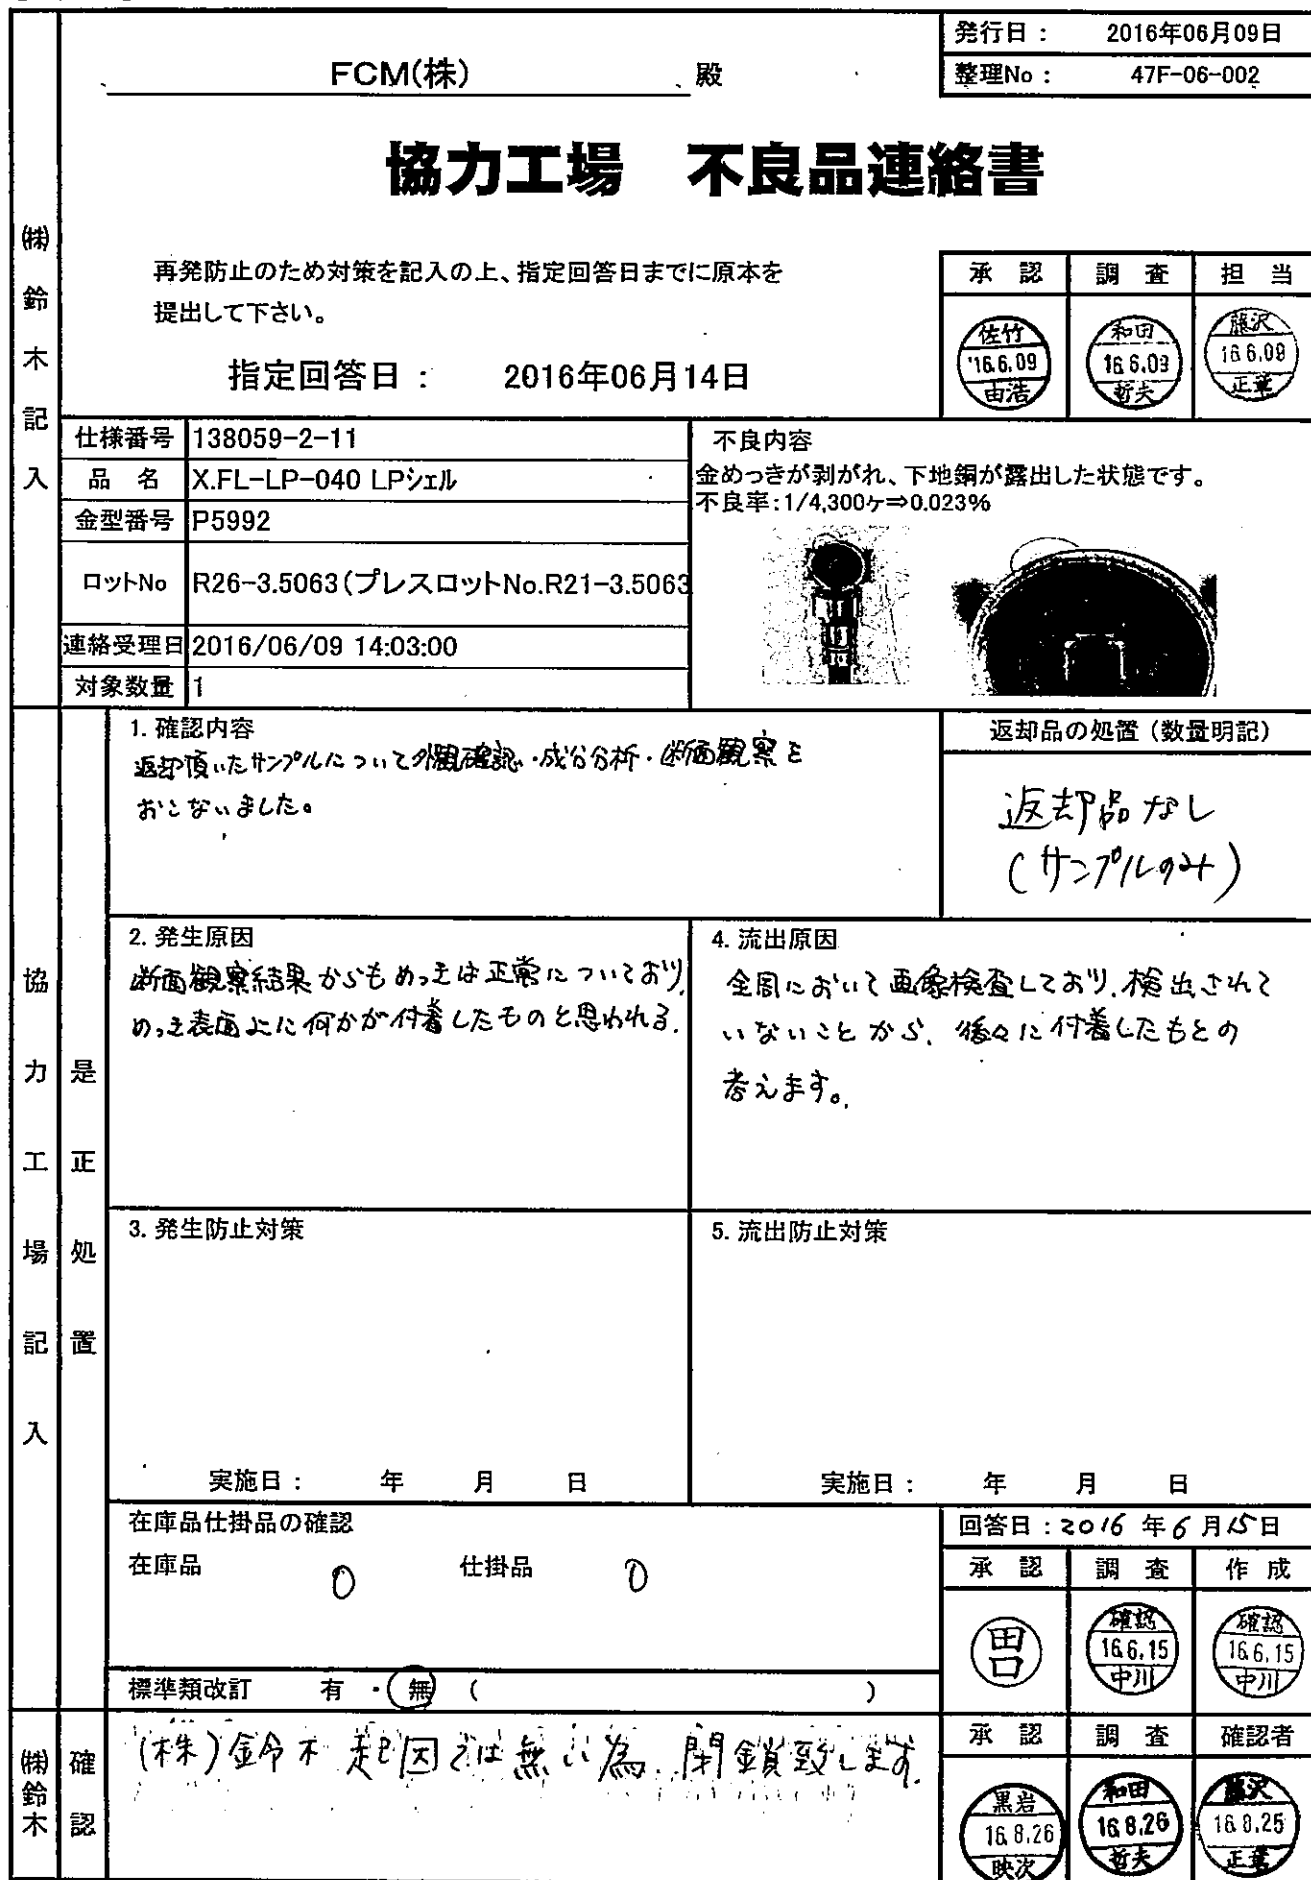 発行日： 2016年06月09日
FCM(株) 殿
整理No： 47F-06-002
協力工場 不良品連絡書
㈱鈴木記入
再発防止のため対策を記入の上、指定回答日までに原本を
提出して下さい。
指定回答日： 2016年06月14日
承認 調査 担当
佐竹 '16.6.09 由浩
和田 16.6.09 哲夫
藤沢 16.6.09
仕様番号 138059-2-11
品名 X.FL-LP-040 LPシェル
金型番号 P5992
ロットNo R26-3.5063(プレスロットNo.R21-3.5063
連絡受理日 2016/06/09 14:03:00
対象数量 1
不良内容
金めっきが剥がれ、下地銅が露出した状態です。
不良率：1/4,300ヶ⇒0.023%
協力工場記入
是正処置
1. 確認内容
返却頂いたサンプルについて外観確認・成分分析・断面観察を
おこないました。
返却品の処置（数量明記）
返却品なし
(サンプルのみ)
2. 発生原因
断面観察結果からもめっきは正常についており、
めっき表面上に何かが付着したものと思われる。
4. 流出原因
全周において画像検査しており、検出されて
いないことから、後々に付着したもとの
考えます。
3. 発生防止対策
実施日： 年 月 日
5. 流出防止対策
実施日： 年 月 日
在庫品仕掛品の確認
在庫品 0 仕掛品 0
標準類改訂 有・無 （ ）
回答日：2016 年 6 月 15 日
承認 調査 作成
田口
確認 16.6.15 中川
確認 16.6.15 中川
㈱鈴木
確認
(株)鈴木 起因では無い為、閉鎖致します。
承認 調査 確認者
黒岩 16.8.26 映次
和田 16.8.26 哲夫
藤沢 16.8.25